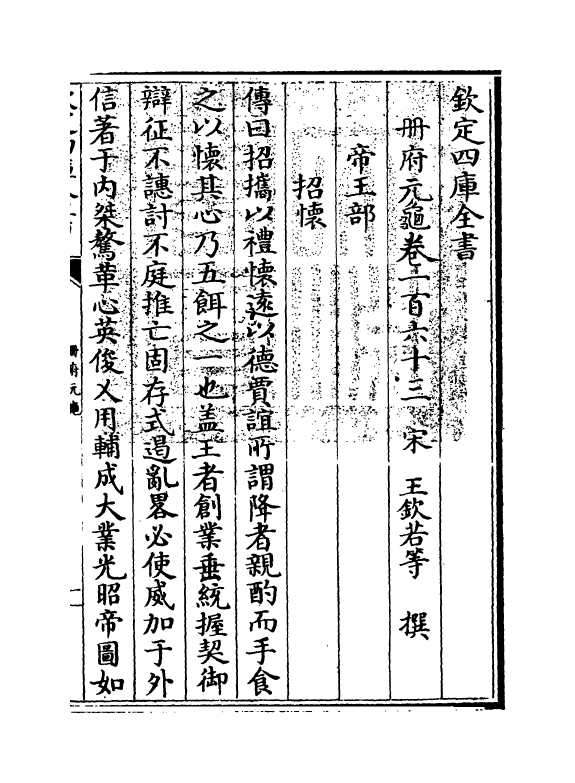 欽定四庫全書
冊府元龜卷一百六十三　宋　王欽若等　撰
帝王部
招懷
傳曰招攜以禮懷逺以德賈誼所謂降者親酌而手食
之以懷其心乃五餌之一也盖王者創業垂統握契御
辯征不譓討不庭推亡固存式遏亂畧必使威加于外
信著于内桀驁革心英俊乂用輔成大業光昭帝圖如
冊府元龜
一